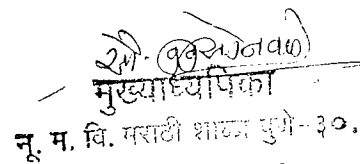 सौ.
मुख्याध्यपिका
नू. म. वि. मराठी शाळा पुणे-३०.